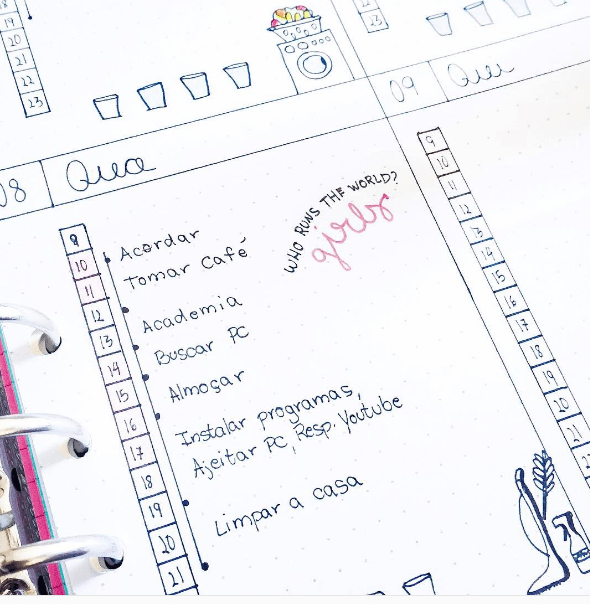 18
19
20
21
22
23
23
08
Qua
9
10
11
12
13
14
15
16
17
18
19
20
21
Acordar
Tomar Café
Academia
Buscar PC
Almoçar
Instalar programas,
Ajeitar PC, Resp. Youtube
Limpar a casa
WHO RUNS THE WORLD?
girls
09
Qui
9
10
11
12
13
14
15
16
17
18
19
20
21